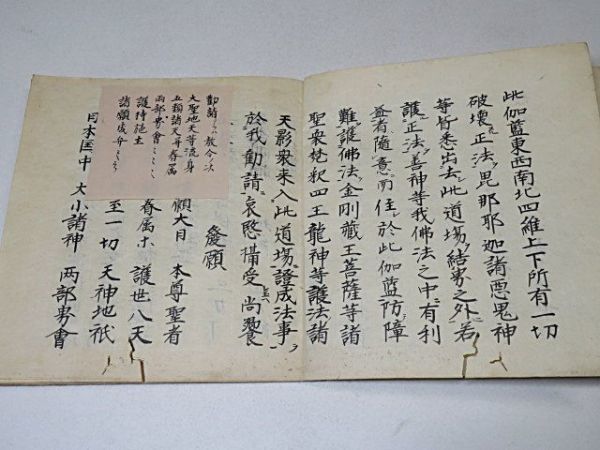 此伽藍東西南北四維上下所有一切
破壞正法毘那耶迦諸悪鬼神
等皆悉出去此道場結界之外若
護正法善神等我佛法之中有利
益者隨意而住於此伽藍防障
難護佛法金剛藏王菩薩等諸
聖衆梵釈四王龍神等護法諸
天影衆来入此道場證成法事
於我勸請哀愍攝受尚饗
發願
願大日 本尊聖者
眷属ホ 護世八天
至一切 天神地祇
日本国中 大小諸神 两部界會
勸請ニ 教令ハ
大聖地天等流身
五類諸天并眷属
两部界會
護持施主
諸願成弁